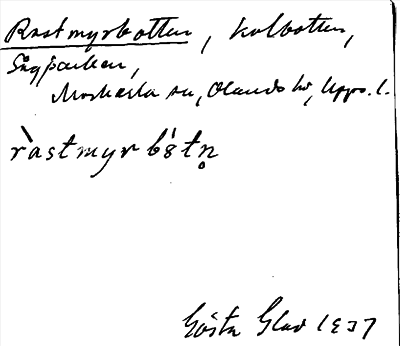 Rastmyrbotten, kolbotten,
Sågparken,
Morkarla sn, Olands hd, Upps. l.
ràstmyrbótn̥
Gösta Glad 1937